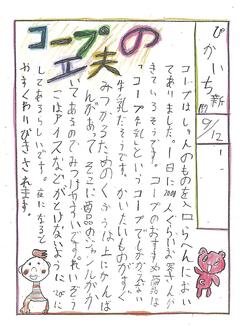 ぴかいち新聞
9/12
コープの工夫
コープはしゅんのものを入口らへんにおい
てありました。一日に
きているそうです。コープのおすすめ商品は
「コープ牛乳」といってコープでしかかえない
牛乳だそうです。かいたいものがすぐ
みつかるためのくふうは上にかんば
んがあって、そこに商品のジャンルがか
いてあるのでみつけやすいです。れいぞう
こはアイスなどがとけないように
してあるらしいです。夜になると
やすくわりびきされます